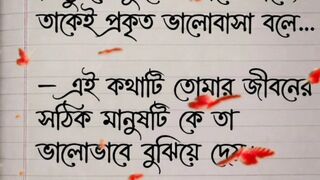 তাকেই প্রকৃত ভালোবাসা বলে...
– এই কথাটি তোমার জীবনের
সঠিক মানুষটি কে তা
ভালোভাবে বুঝিয়ে দেয়